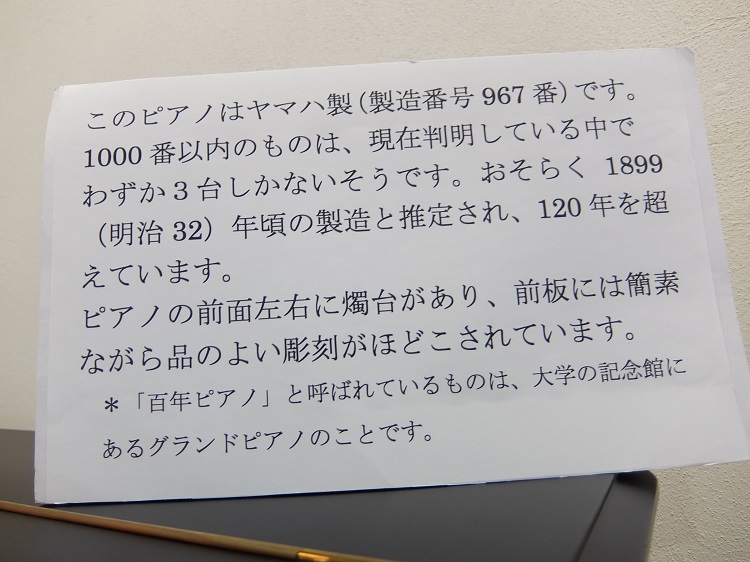 このピアノはヤマハ製（製造番号 967 番）です。
1000 番以内のものは、現在判明している中で
わずか３台しかないそうです。おそらく 1899
（明治 32）年頃の製造と推定され、120 年を超
えています。
ピアノの前面左右に燭台があり、前板には簡素
ながら品のよい彫刻がほどこされています。
＊「百年ピアノ」と呼ばれているものは、大学の記念館に
あるグランドピアノのことです。